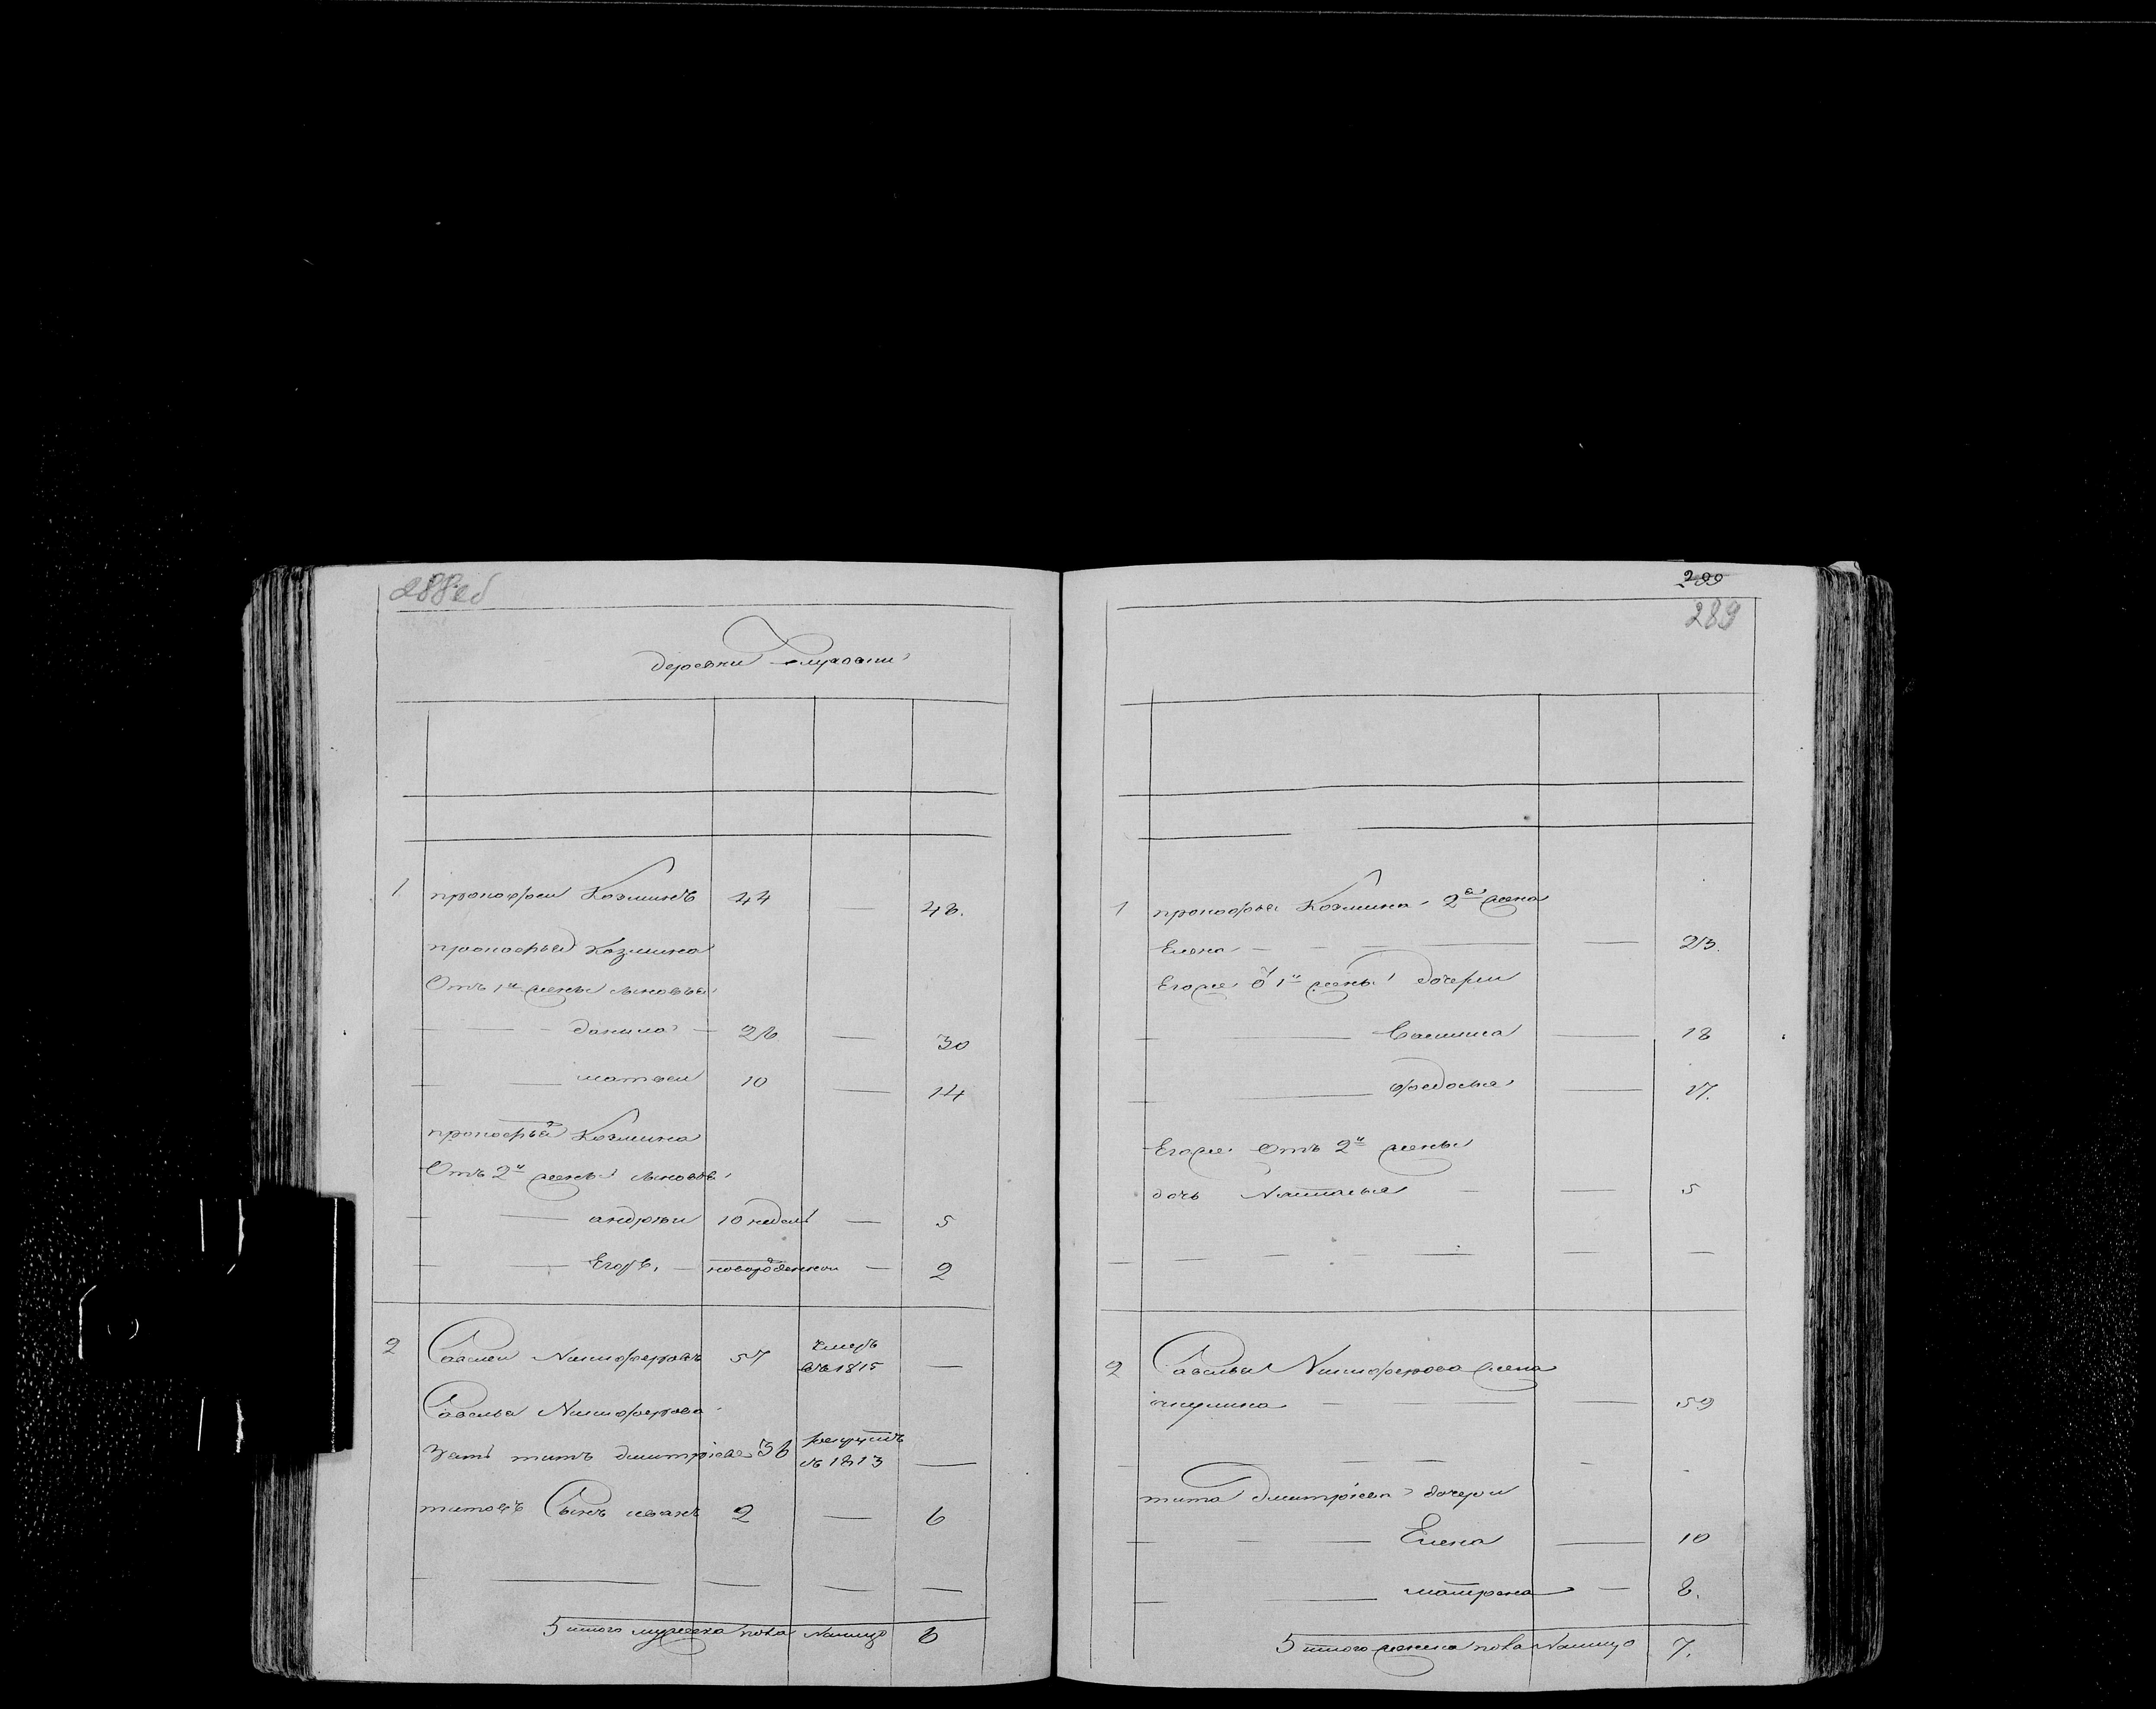 288об
деревни
1 прокофеи Козминъ 44 — 48.
прокофья Козмина
Отъ 1й жены сыновья
данила 26 — 30
матвеи 10 — 14
прокофья Козмина
Отъ 2й жены сыновья
андреи 10 недель — 5
Егоръ новорожденнои — 2
2 Савелеи Никифоровъ 57 умеръ въ 1815 —
Савелья Никифорова
зять титъ дмитріевъ 36 рекрутъ въ 1813 —
титовъ Сынъ иванъ 2 — 6
итого мужеска пола налицо 6
289
1 прокофья Козмина 2я жена
Елена — 23.
Егоже о 1й жены дочери
— 18
федосья — 17.
Егоже Отъ 2й жены
дочь Наталья — 5
2 Савелья Никифорова жена
акулина — 59
тита дмитріева дочери
Елена — 10
матрена — 8.
итого женска пола налицо 7.